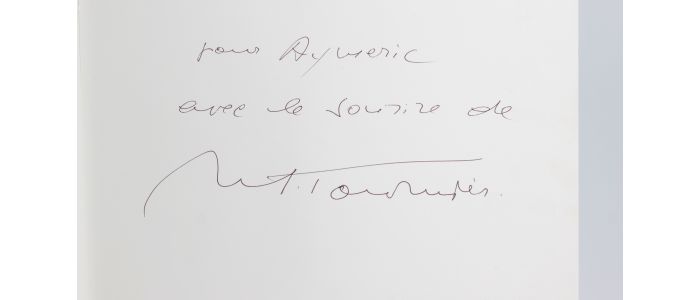 pour Aymeric
avec le sourire de
M.T. Tournier.